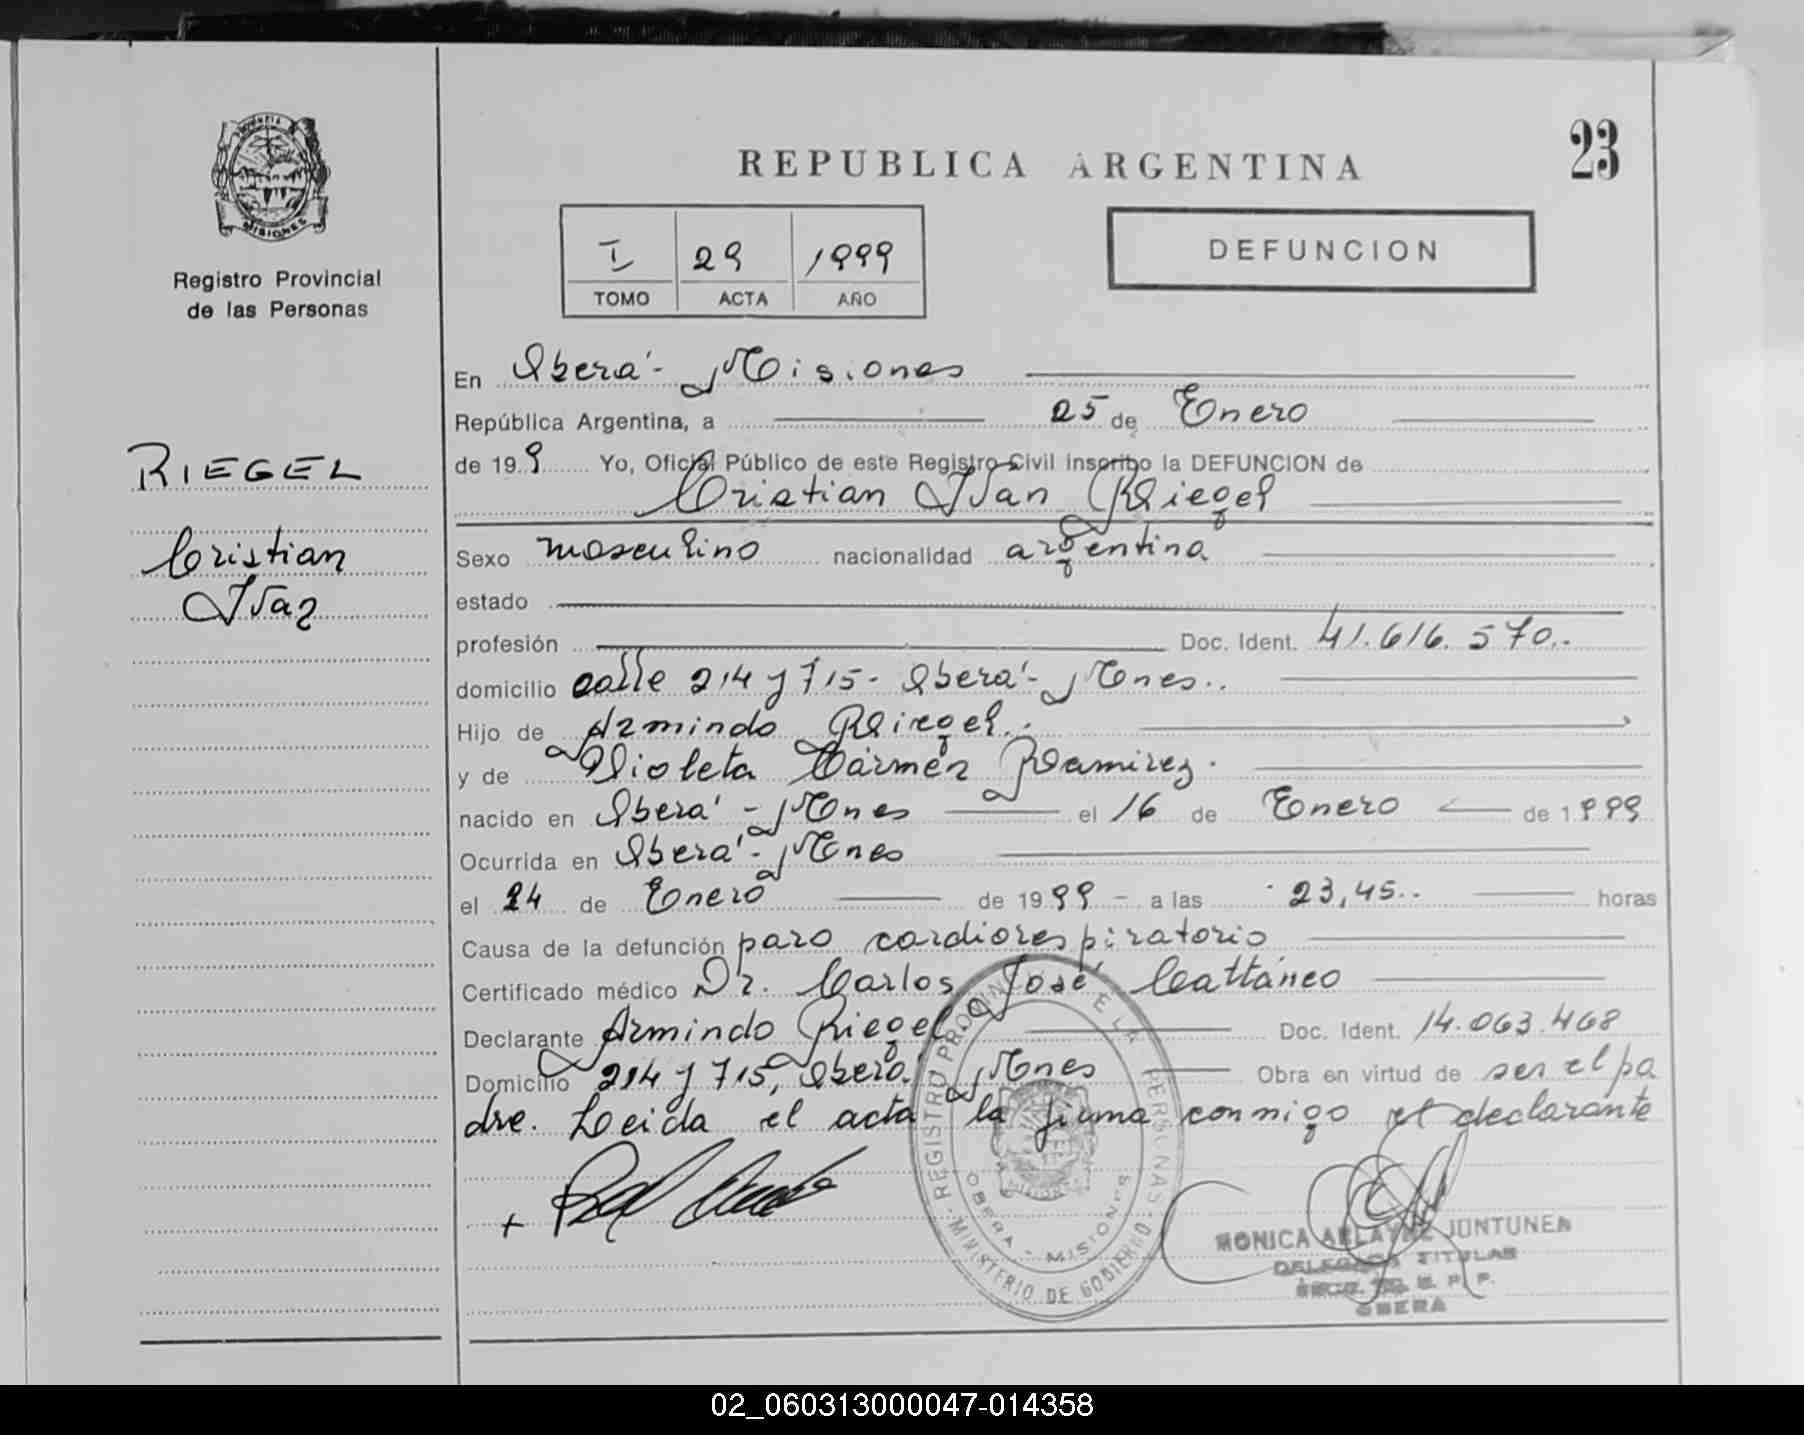 PROVINCIA DE
MISIONES
Registro Provincial
de las Personas
RIEGEL
Cristian
Iván
REPUBLICA ARGENTINA
23
I 29 1999
TOMO ACTA AÑO
DEFUNCION
En Oberá - Misiones
República Argentina, a 25 de Enero
de 199 Yo, Oficial Público de este Registro Civil inscribo la DEFUNCION de
Cristian Ivan Riegel
Sexo masculino nacionalidad argentina
estado
profesión Doc. Ident. 41.616.570.-
domicilio calle 214 y 715 - Oberá - Mnes..
Hijo de Armindo Riegel.
y de Violeta Cármen Ramirez.
nacido en Oberá - Mnes el 16 de Enero de 1999
Ocurrida en Oberá - Mnes
el 24 de Enero de 1999 - a las 23,45.. horas
Causa de la defunción paro cardiorespiratorio
Certificado médico Dr. Carlos José Cattáneo
Declarante Armindo Riegel Doc. Ident. 14.063.468
Domicilio 214 y 715, Oberá. Mnes Obra en virtud de ser el pa
dre. Leida el acta la firma conmigo el declarante
REGISTRO PROVINCIAL DE LAS PERSONAS - MINISTERIO DE GOBIERNO -
OBERA - MISIONES
MONICA JUNTUNEN
DELEGADA TITULAR
R. P. P.
OBERA
02_060313000047-014358